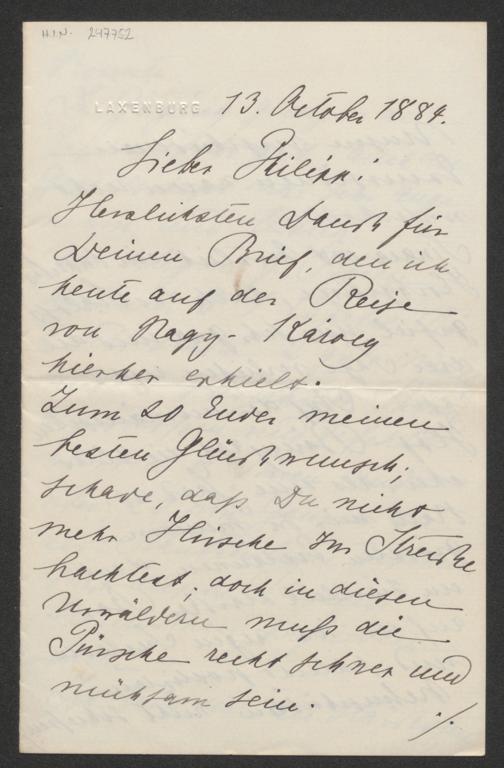 H.I.N. 247752
LAXENBURG 13. October 1884.
Lieber Philipp!
Herzlichsten Dank für
Deinen Brief, den ich
heute auf der Reise
von Nagy-Károly
hierher erhielt.
Zum 20 Ender meinen
besten Glückwunsch;
schade, daß Du nicht
mehr Hirsche zur Strecke
brachtest, doch in diesen
Urwäldern muß die
Pürsche recht schwer und
mühsam sein.
./.